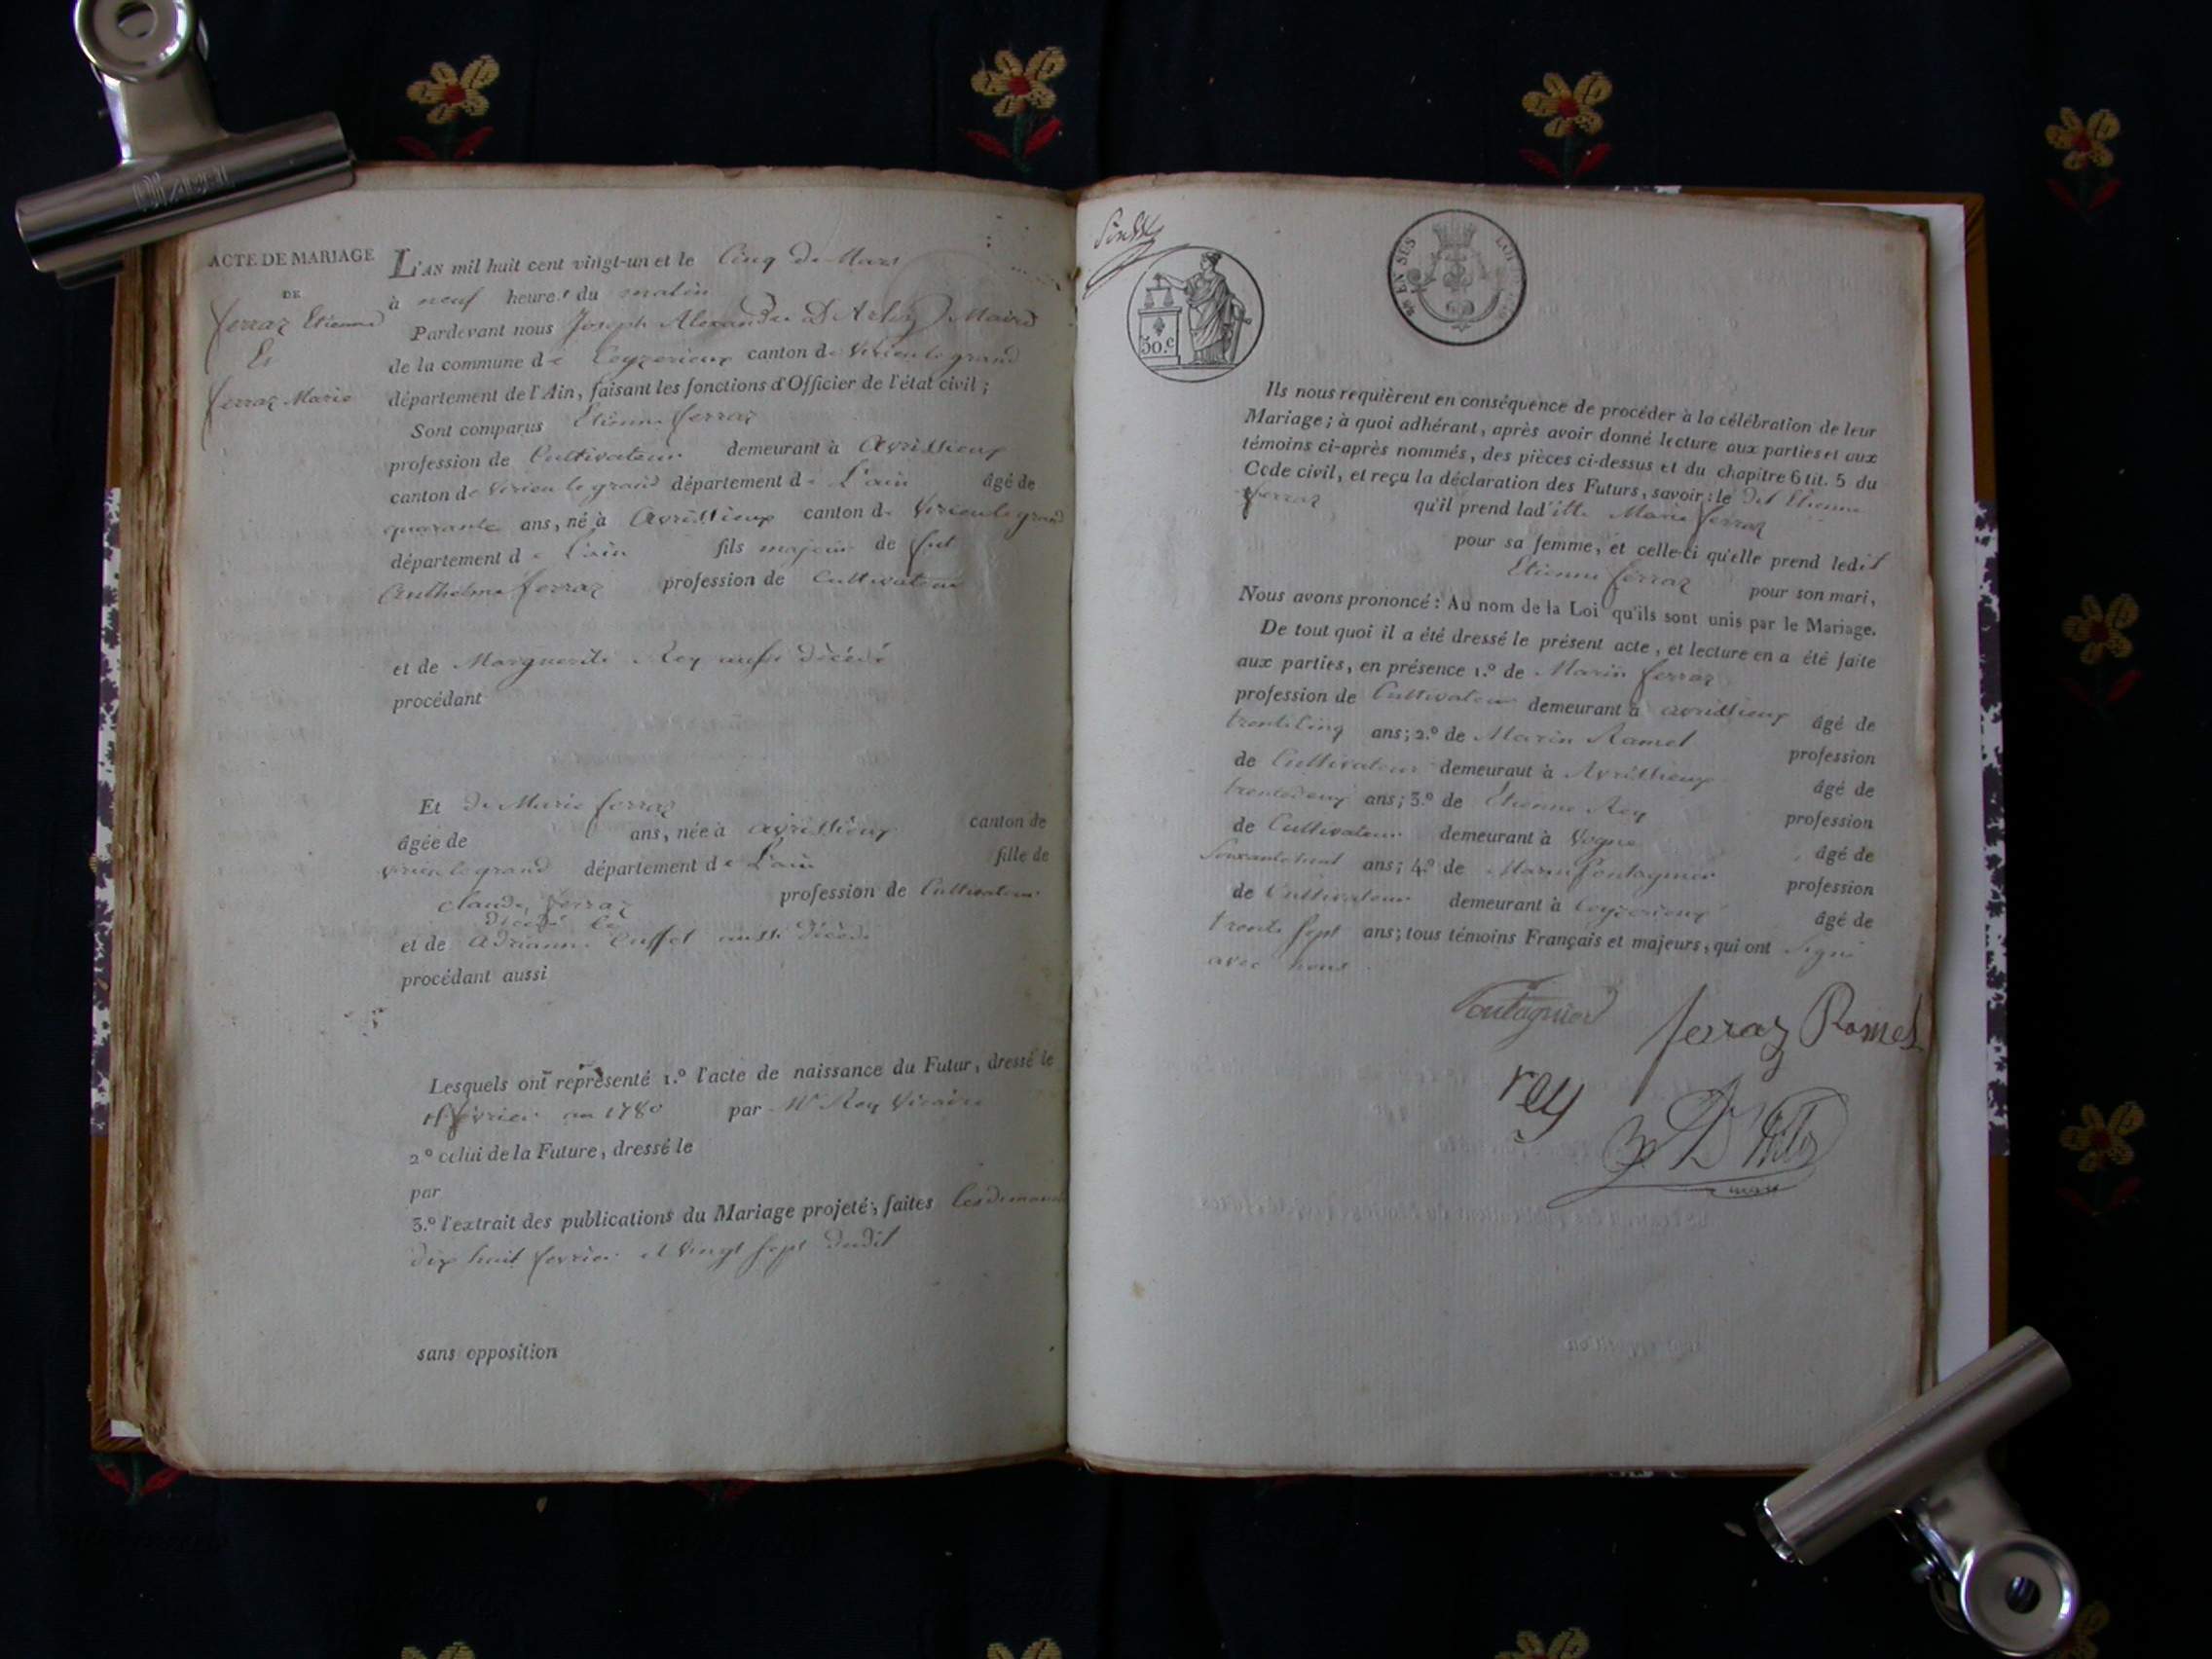 ACTE DE MARIAGE
DE
ferraz Etienne
Et
ferraz Marie
L'AN mil huit cent vingt-un et le Cinq de Mars
à neuf heures du matin
Pardevant nous Joseph Alexandre D Maire
de la commune de Ceyzerieux canton de Virieu le grand
département de l'Ain, faisant les fonctions d'Officier de l'état civil;
Sont comparus Etienne ferraz
profession de Cultivateur demeurant à Avrissieux
canton de Virieu le grand département de L'ain âgé de
quarante ans, né à Avrissieux canton de Virieu le grand
département de L'ain fils majeur de fut
Anthelme ferraz profession de Cultivateur
et de Marguerite Rey aussi décédé
procédant
Et de Marie ferraz
âgée de ans, née à avrissieux canton de
virieu le grand département de L'ain fille de
claude ferraz profession de Cultivateur
décédé
et de Adrianne Cusset aussi décédé
procédant aussi
Lesquels ont représenté 1.º l'acte de naissance du Futur, dressé le
février an 1780 par Mr Rey Vicaire
2º celui de la Future, dressé le
par
3.º l'extrait des publications du Mariage projeté, faites les dimanche
dix huit fevrier et vingt sept dudit
sans opposition
50.c
Ils nous requièrent en conséquence de procéder à la célébration de leur
Mariage; à quoi adhérant, après avoir donné lecture aux parties et aux
témoins ci-après nommés, des pièces ci-dessus et du chapitre 6 tit. 5 du
Code civil, et reçu la déclaration des Futurs, savoir: le dit Etienne
ferraz qu'il prend ladite Marie ferraz
pour sa femme, et celle-ci qu'elle prend ledit
Etienne ferraz pour son mari,
Nous avons prononcé: Au nom de la Loi qu'ils sont unis par le Mariage.
De tout quoi il a été dressé le présent acte, et lecture en a été faite
aux parties, en présence 1.º de Marin ferraz
profession de Cultivateur demeurant à avrissieux âgé de
trente cinq ans; 2.º de Marin Ramel profession
de Cultivateur demeurant à Avrissieux âgé de
trente deux ans; 3.º de Etienne Rey profession
de Cultivateur demeurant à Vogne âgé de
ans; 4.º de Marin fontagnier profession
de Cultivateur demeurant à Ceyzerieux âgé de
trente sept ans; tous témoins Français et majeurs, qui ont signé
avec nous
fontagnier ferraz Ramel
rey
maire